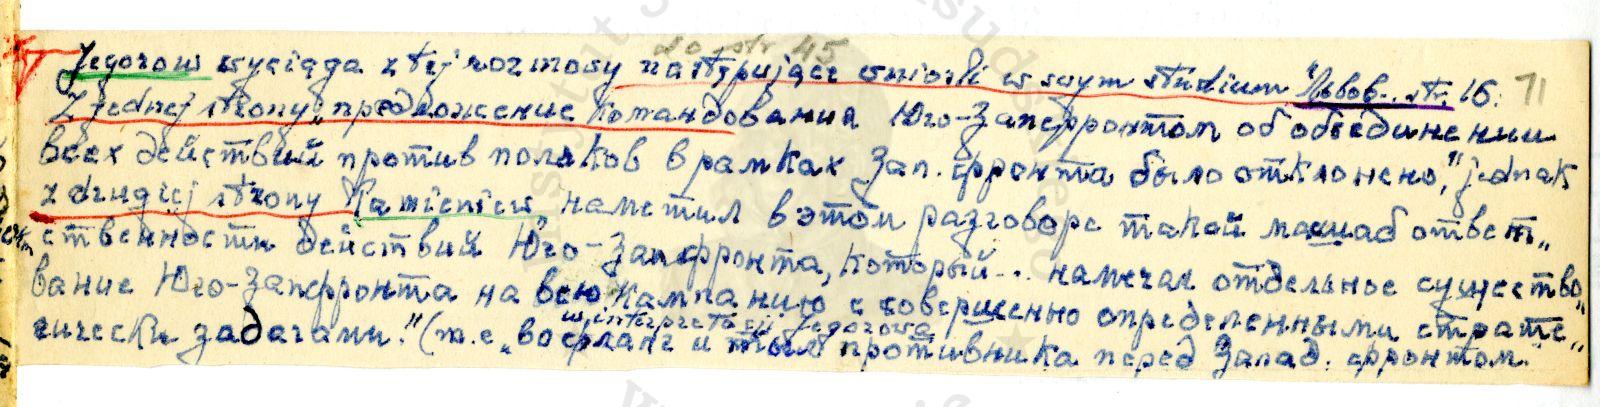 do str 45
71
Jegorow wyciąga z tej rozmowy następujące wnioski w swym studium "Львов.. str. 16:
Z jednej strony „предложение Командования Юго-Запфронтом об объединении
всех действий против поляков в рамках Зап. фронта было отклонено," jednak
z drugiej strony Kamieniew „наметил в этом разговоре такой масшаб ответ„
ственности действий Юго-Запфронта, который... намечал отдельное существо„
вание Юго-Запфронта на всю кампанию с совершенно определенными страте„
гически задачами." (т.е „во фланг и тыл противника перед Запад. фронтом."
w interpretacji Jegorowa